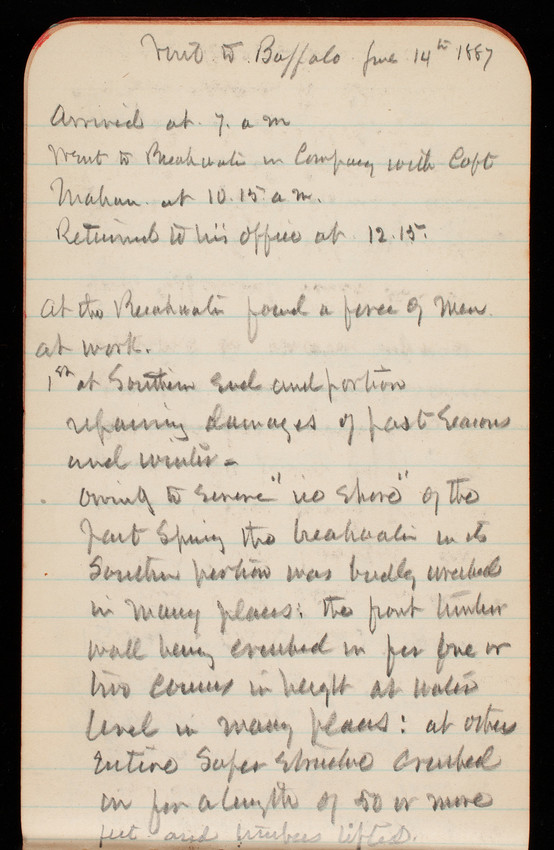 Visit to Buffalo June 14th 1887
Arrived at 7. a m
Went to Breakwater in Company with Capt
Mahan at 10.15 a m.
Returned to his office at 12.15.
At the Breakwater found a force of men
at work.
1st at Southern End and portion
repairing damages of past Seasons
and winter-
owing to severe "ice shove" of the
past Spring the breakwater in its
Southern portion was badly wrecked
in many places: the front timber
wall being crushed in for one or
two courses in height at water
level in many places: at others
Entire Super Structure crushed
in for a length of 50 or more
feet and timbers lifted.